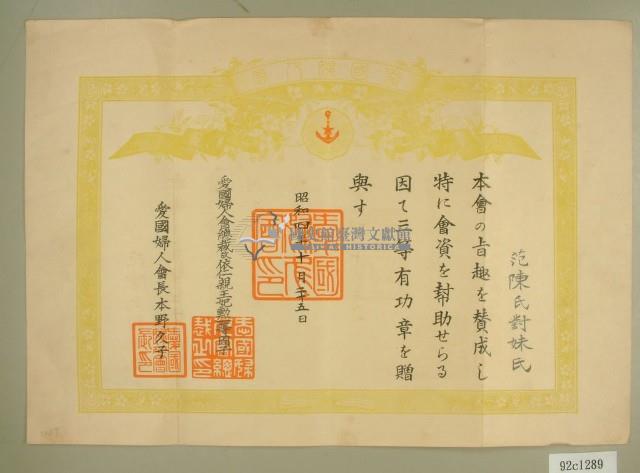 愛國婦人會
范陳氏對妹氏
本會の旨趣を賛成し
特に會資を幇助せらる
因て三等有功章を贈
與す
昭和四年十月二十五日
愛國婦人會總裁依仁親王妃勲一等周子
愛國婦人會長本野久子
國史館臺灣文獻館
92c1289